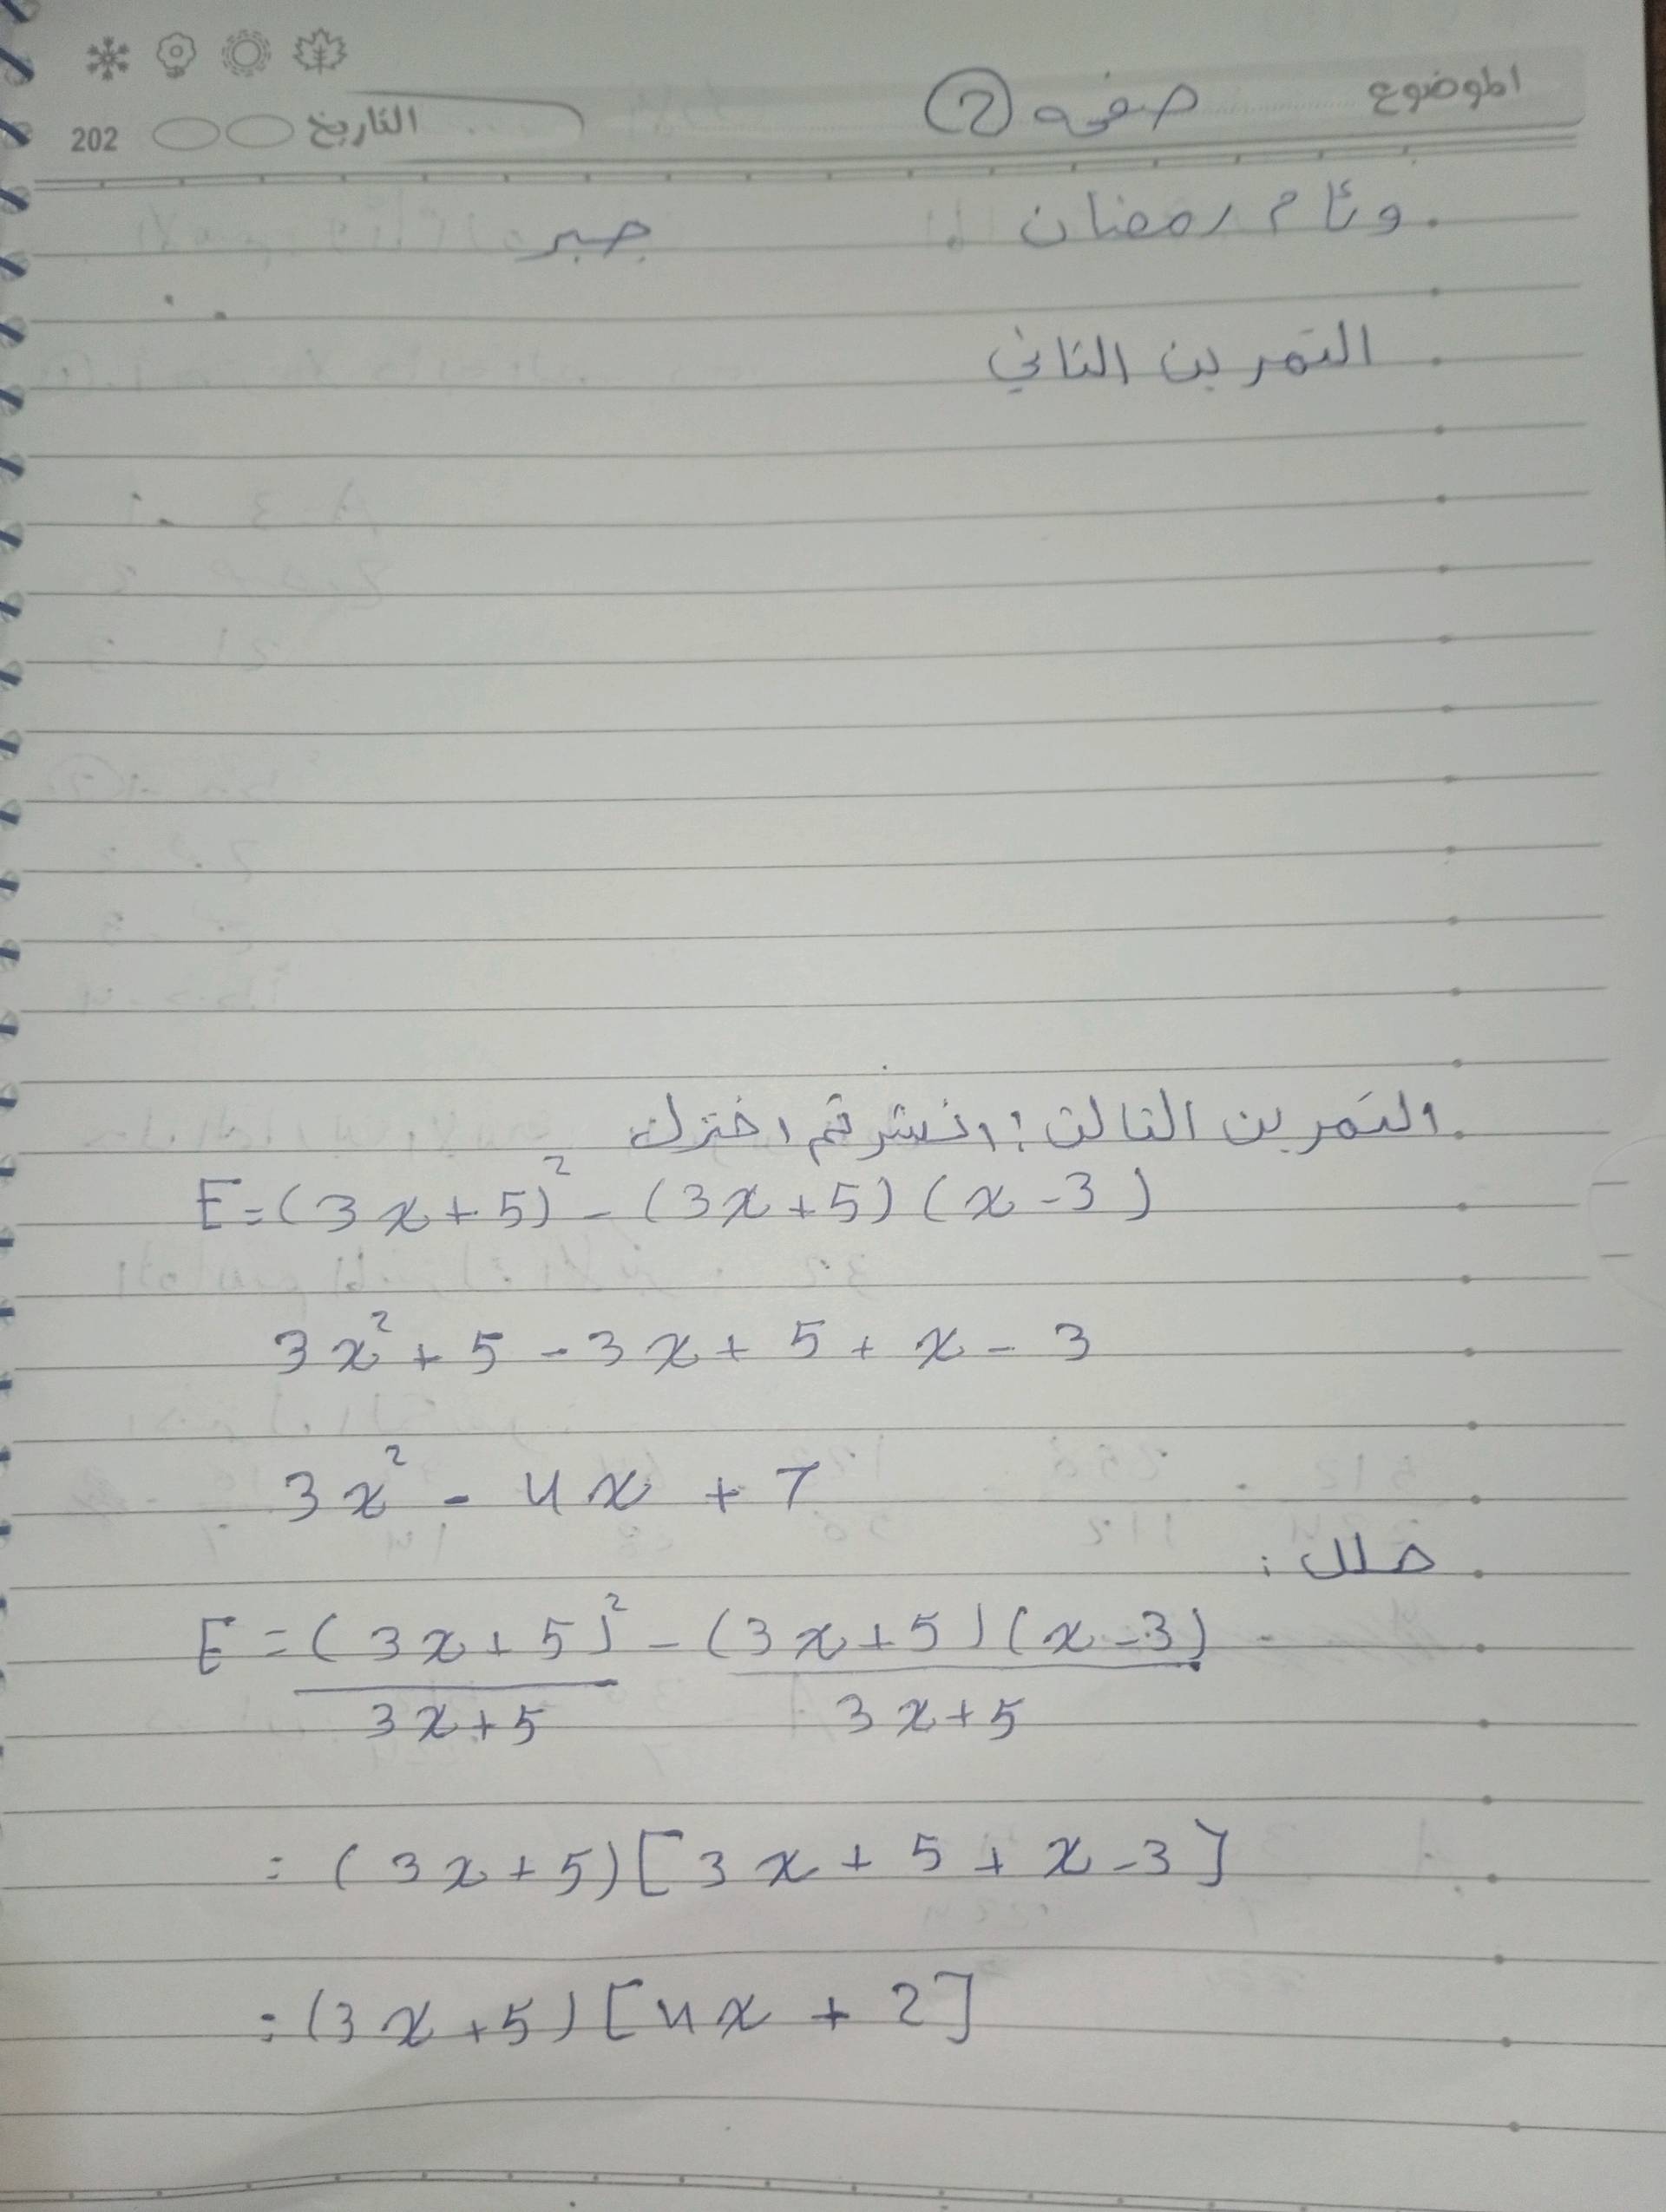 الموضوع صفحه (2)
التاريخ 202
وئام رمضان جبر
التمرين الثاني
التمرين الثالث: انشر ثم اختزل
E = (3x+5)² - (3x+5)(x-3)
3x² + 5 - 3x + 5 + x - 3
3x² - 4x + 7
حلل:
E = (3x+5)² - (3x+5)(x-3)
3x+5 3x+5
= (3x+5)[3x+5+x-3]
= (3x+5)[4x+2]